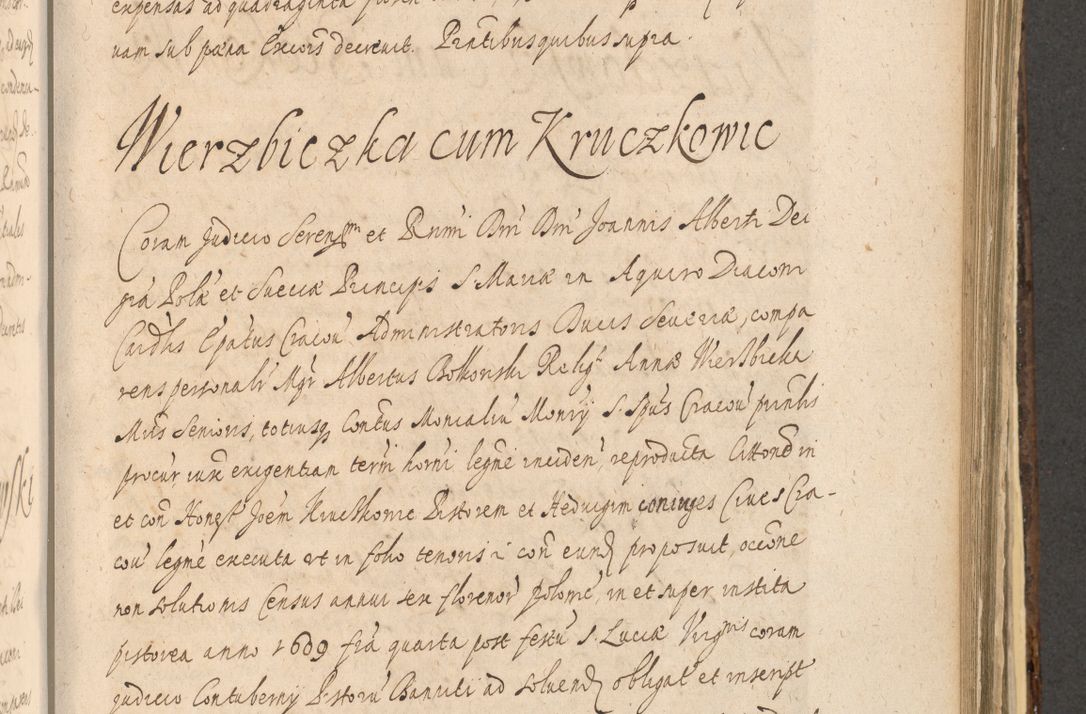 expensas ad quadraginta
uam sub pæna Excois decrevit. Pntibus quibus supra.
Wierzbiczka cum Kruczkowic
Coram Judicio Serenissm et Rnmi Dni Dni Joannis Alberti Dei
gra Polæ et Sueciæ Principis S. Mariæ in Aquiro Diaconi
Cardlis Epatus Cracou Administratoris Ducis Severiæ, compa
rens personalr Mgr Albertus Bolkowski Relig Annæ Wierszbicka
Mris Senioris, totiusq Contus Monialiu Monrij S. Spus Cracou prinlis
procur iuxe exigentiam term horni legne inciden, reproducta Cittone in
et con Honest Joem Kruczkowic Pistorem et Hedvigim coniuges Cives Cra-
cou legne executa ut in folio tenoris i con eund proposuit, occone
non solutionis Census annui sex florenor polonic, in et super instita
pistorea anno 1609 fra quarta post festu S. Luciæ Virgnis coram
judicio Contubernij Pistoru Banniti ad soluend obligat et inscript